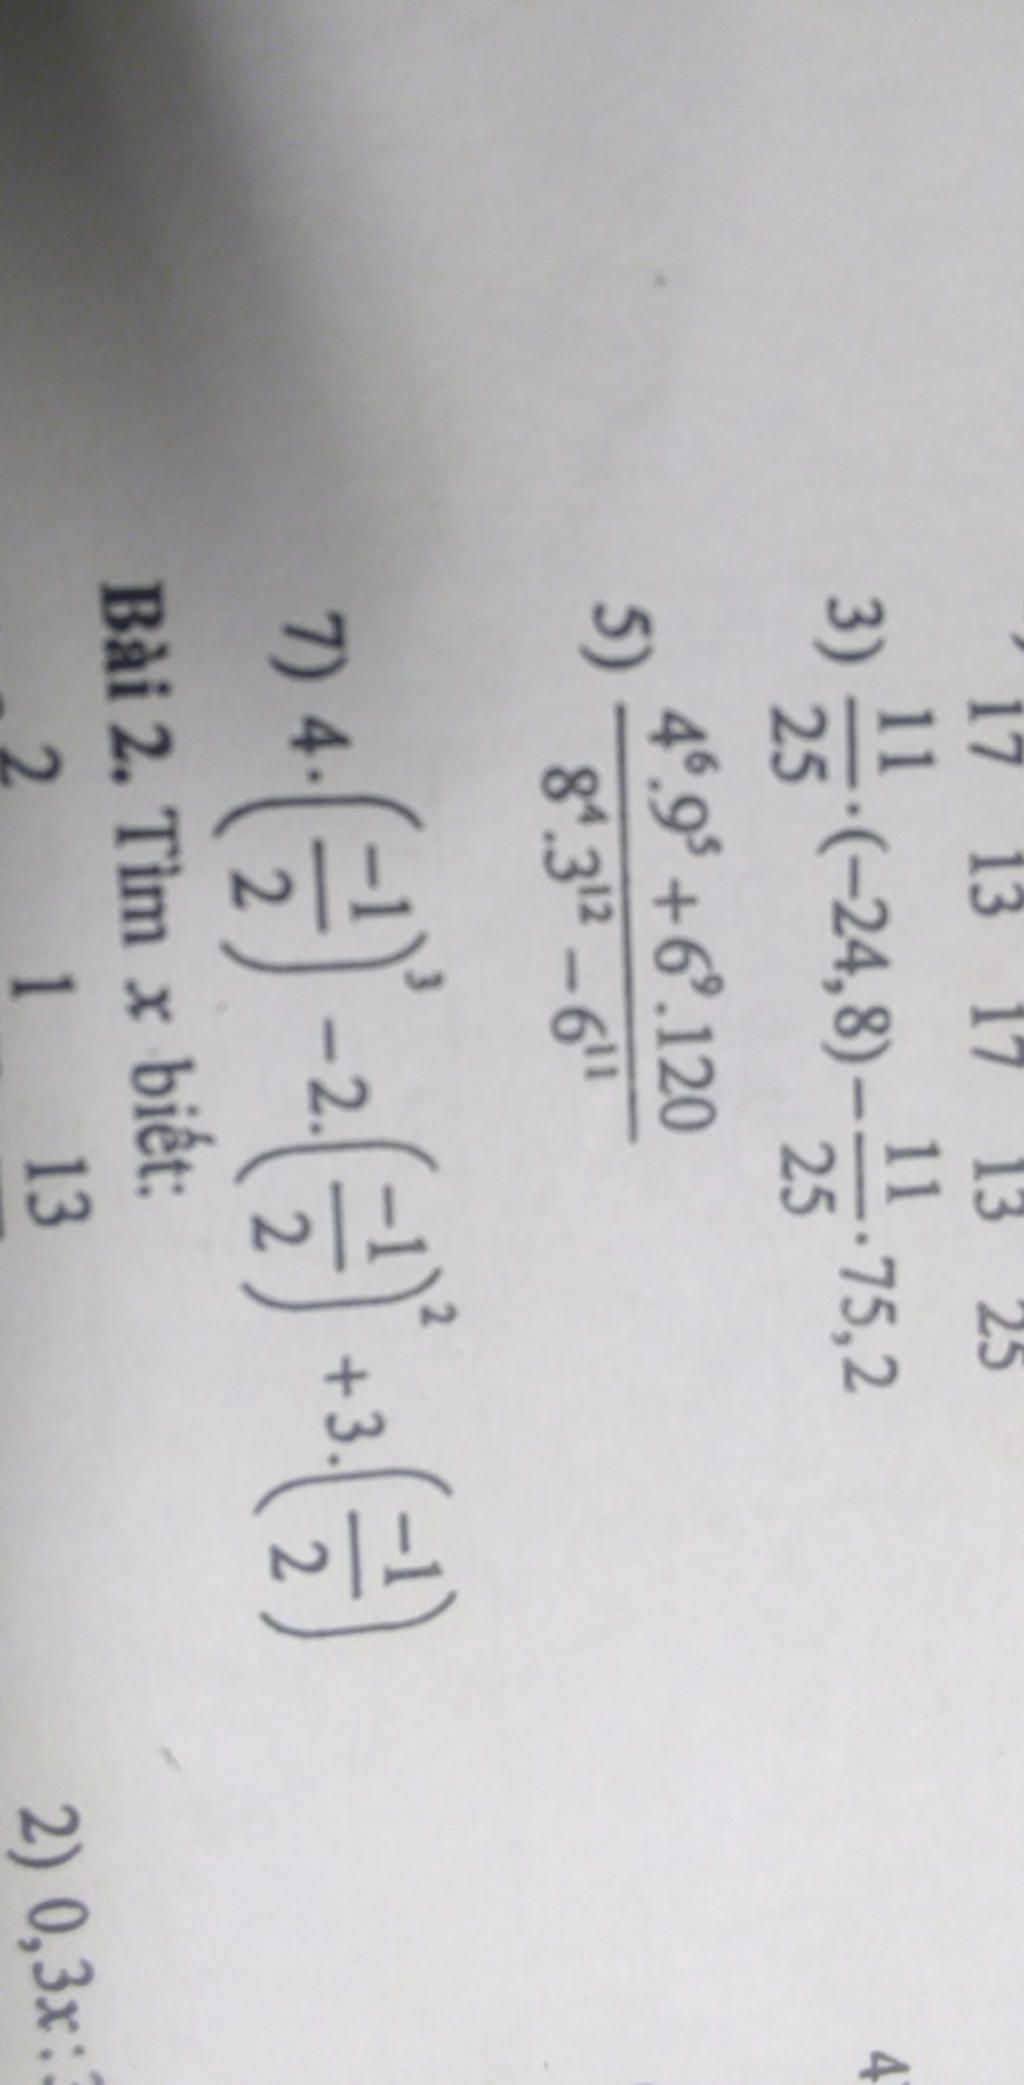 17 13 17 13 25
3) \frac{11}{25}.(-24,8)-\frac{11}{25}.75,2
5) \frac{4^6.9^5+6^9.120}{8^4.3^{12}-6^{11}}
7) 4.\left(\frac{-1}{2}\right)^3-2.\left(\frac{-1}{2}\right)^2+3.\left(\frac{-1}{2}\right)
Bài 2. Tìm x biết:
2 1 13
2) 0,3x: